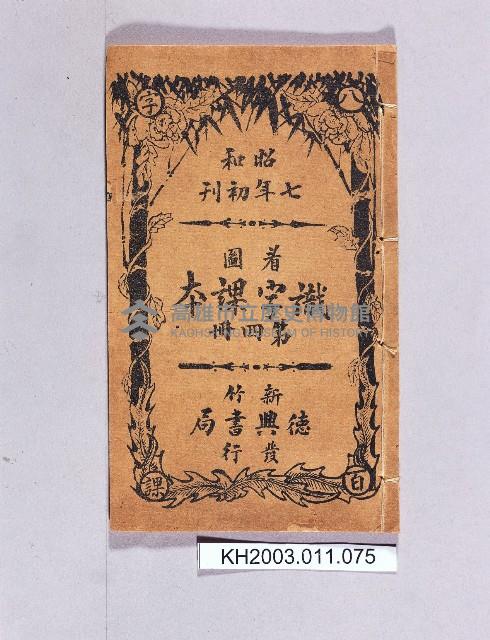 八百
字課
昭和
七年初刊
看圖
識字課本
第四冊
新竹
德興書局
發行
高雄市立歷史博物館
KAOHSIUNG MUSEUM OF HISTORY
KH2003.011.075